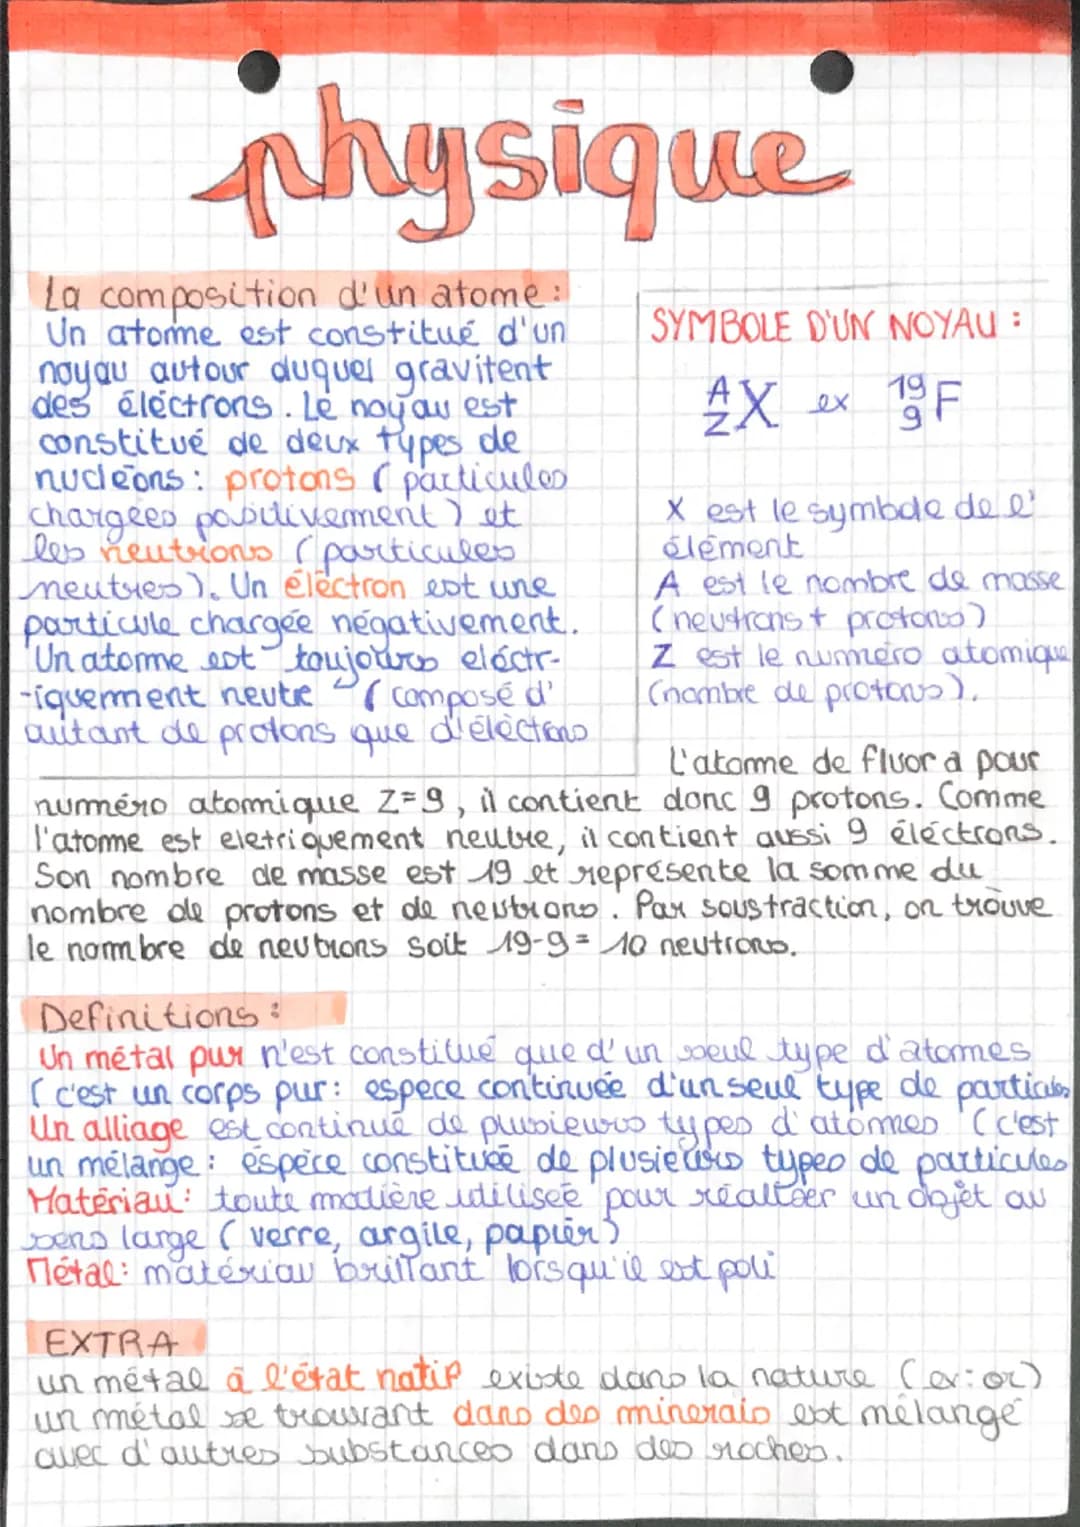 physique
La composition d'un atome :
Un atome est constitué d'un
noyau autour duquel gravitent
des éléctrons. Le noyau est
constitué de deux types de
nucléons : protons ( particules
chargées positivement ) et
les neutrons ( particules
neutres ). Un éléctron est une
particule chargée négativement.
Un atome est "toujours eléctr-
-iquement neutre" ( composé d'
autant de protons que d'éléctrons
SYMBOLE D'UN NOYAU :
A
Z X ex 19
9 F
X est le symbole de l'
élément
A est le nombre de masse
( neutrons + protons )
Z est le numéro atomique
(nombre de protons ).
L'atome de fluor a pour
numéro atomique Z=9, il contient donc 9 protons. Comme
l'atome est eletriquement neutre, il contient aussi 9 éléctrons.
Son nombre de masse est 19 et représente la somme du
nombre de protons et de neutrons. Par soustraction, on trouve
le nombre de neutrons soit 19-9 = 10 neutrons.
Definitions :
Un métal pur n'est constitué que d'un seul type d'atomes
( c'est un corps pur : espece continuée d'un seul type de particules
Un alliage est continué de plusieurs types d'atomes ( c'est
un mélange : espèce constituée de plusieurs types de particules
Matériau : toute matière utilisée pour réaliser un objet au
sens large ( verre, argile, papier )
Métal : matériau brillant lorsqu'il est poli
EXTRA
un métal à l'état natif existe dans la nature ( ex : or )
un métal se trouvant dans des minerais est mélangé
avec d'autres substances dans des roches.